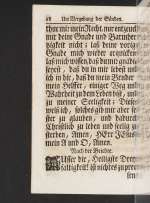 28 Um Vergebung der Sünden.
thue mir mein Recht, nur entzeuch
mir deine Gnade und Barmher-
tzigkeit nicht: laß deine vorige
Gnade mich wieder erquicken:
laß mich wissen, daß du mir gnädig
seyest, daß du in mir lebest und
ich in dir, daß du mein Bruder
mein Helffer, einiger Weg und
Wahrheit zu dem Leben bist, und
zu meiner Seeligkeit: Dieses
weiß ich, solches gib mir aber
fest zu glauben, und dadurch
Christlich zu leben und seelig zu
sterben, Amen, HErr JEsu
mein A und O, Amen.
Nach der Beichte.
Heiligste Drey-
faltigkeit! ist nichts